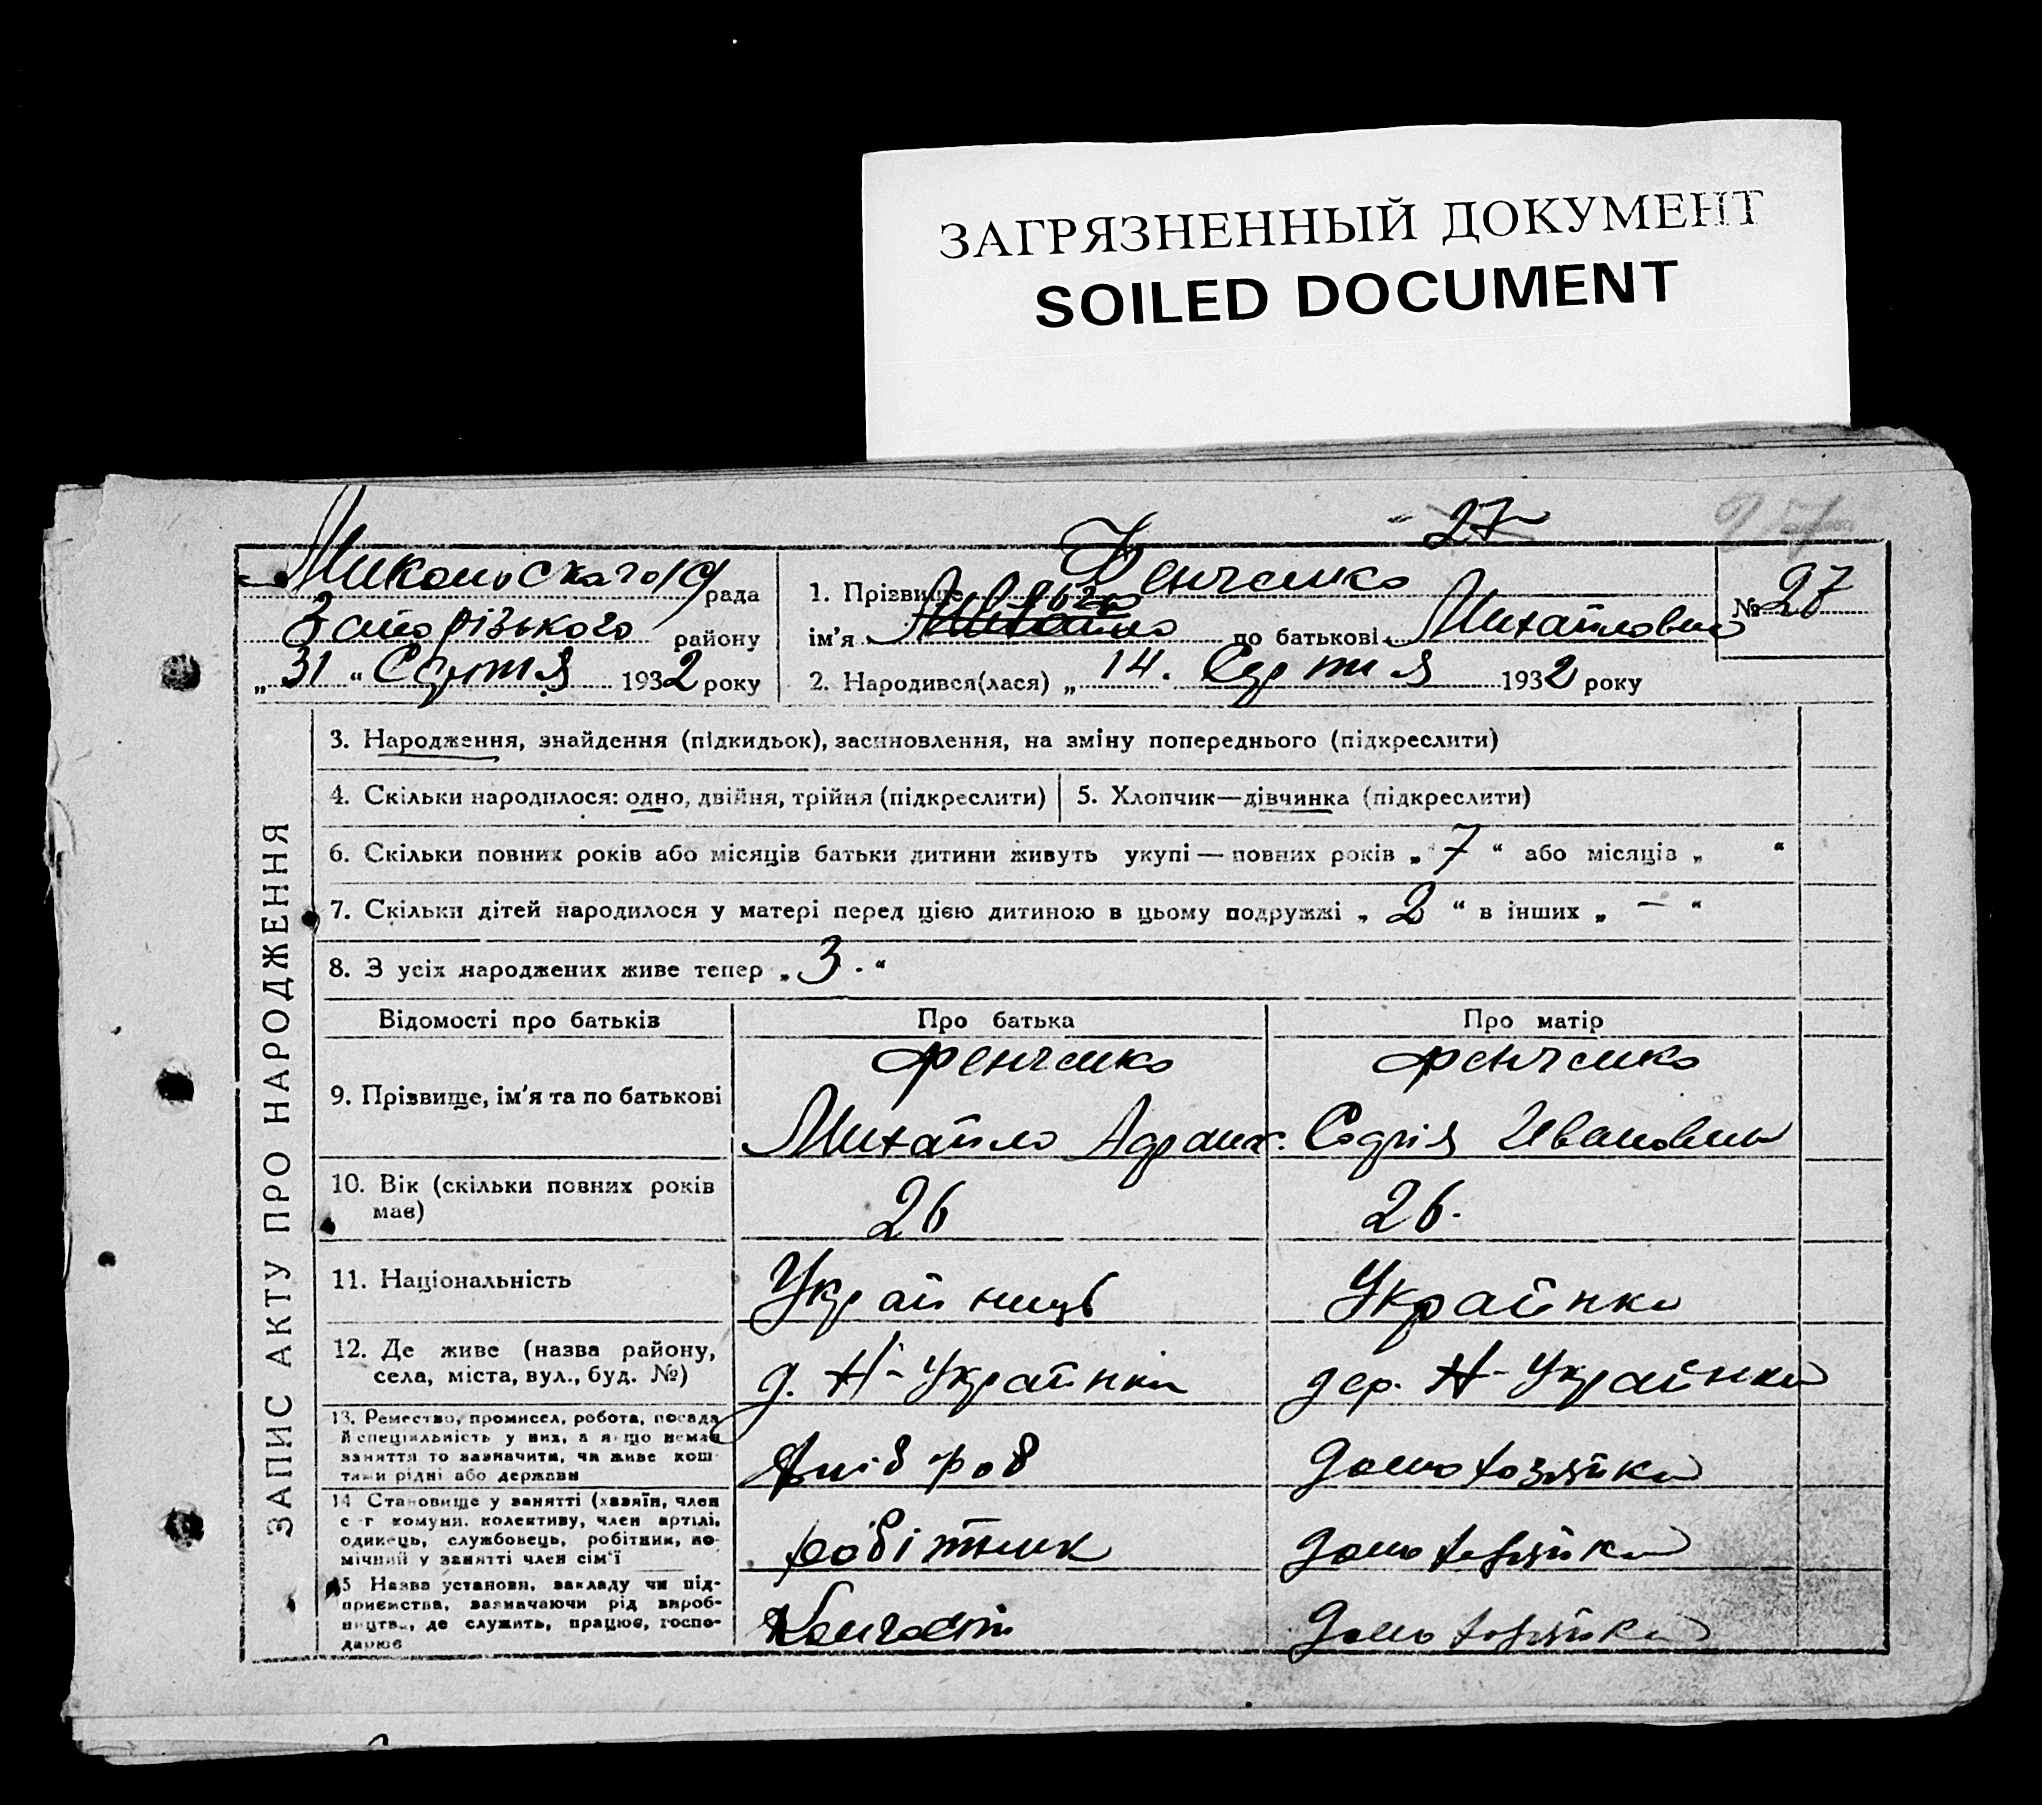 ЗАГРЯЗНЕННЫЙ ДОКУМЕНТ
SOILED DOCUMENT
27
27
рада
Запорізького району
„ 31 “ Серпня 1932 року
1. Прізвище Фенченко
ім'я по батькові Михайловна
№ 27
2. Народився(лася) „ 14. Серпня 1932 року
ЗАПИС АКТУ ПРО НАРОДЖЕННЯ
3. Народження, знайдення (підкидьок), засиновлення, на зміну попереднього (підкреслити)
4. Скільки народилося: одно, двійня, трійня (підкреслити)
5. Хлопчик—дівчинка (підкреслити)
6. Скільки повних років або місяців батьки дитини живуть укупі — повних років „ 7 “ або місяців „ “
7. Скільки дітей народилося у матері перед цією дитиною в цьому подружжі „ 2 “ в інших „ — “
8. З усіх народжених живе тепер „ 3. “
Відомості про батьків
Про батька
Про матір
9. Прізвище, ім'я та по батькові
Фенченко
Михайло
Фенченко
Софія Ивановна
10. Вік (скільки повних років має)
26
26.
11. Національність
Українець
Українка
12. Де живе (назва району, села, міста, вул., буд. №)
д. Н-Українка
дер. Н-Українка
13. Ремество, промисел, робота, посада й спеціяльність у них, а якщо немає заняття то зазначити, чи живе коштами рідні або держави
домохозяйка
14 Становище у занятті (хазяїн, член с-г комуни, колективу, член артілі, одинець, службовець, робітник, помічний у занятті член сім'ї
робітник
домохозяйка
15 Назва установи, закладу чи підприємства, зазначаючи рід виробництва, де служить, працює, господарює
домохозяйка